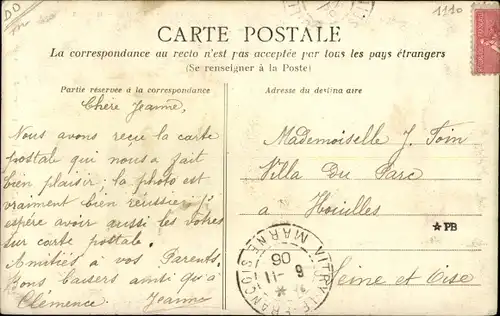 DD
1110
CARTE POSTALE
La correspondance au recto n'est pas acceptée par tous les pays étrangers
(Se renseigner à la Poste)
Partie réservée à la correspondance
Adresse du destinataire
Chère Jeanne,
Nous avons reçu la carte
postale qui nous a fait
bien plaisir; la photo est
vraiment bien réussie; j'
espère avoir aussi les vôtres
sur carte postale.
Amitiés à vos Parents,
Bons baisers ainsi qu'à
Clémence. Jeanne
Mademoiselle J.
Villa Du Parc
a Houilles
Seine et Oise
★PB
VITRY-LE-FRANÇOIS
MARNE
9 - 11
06